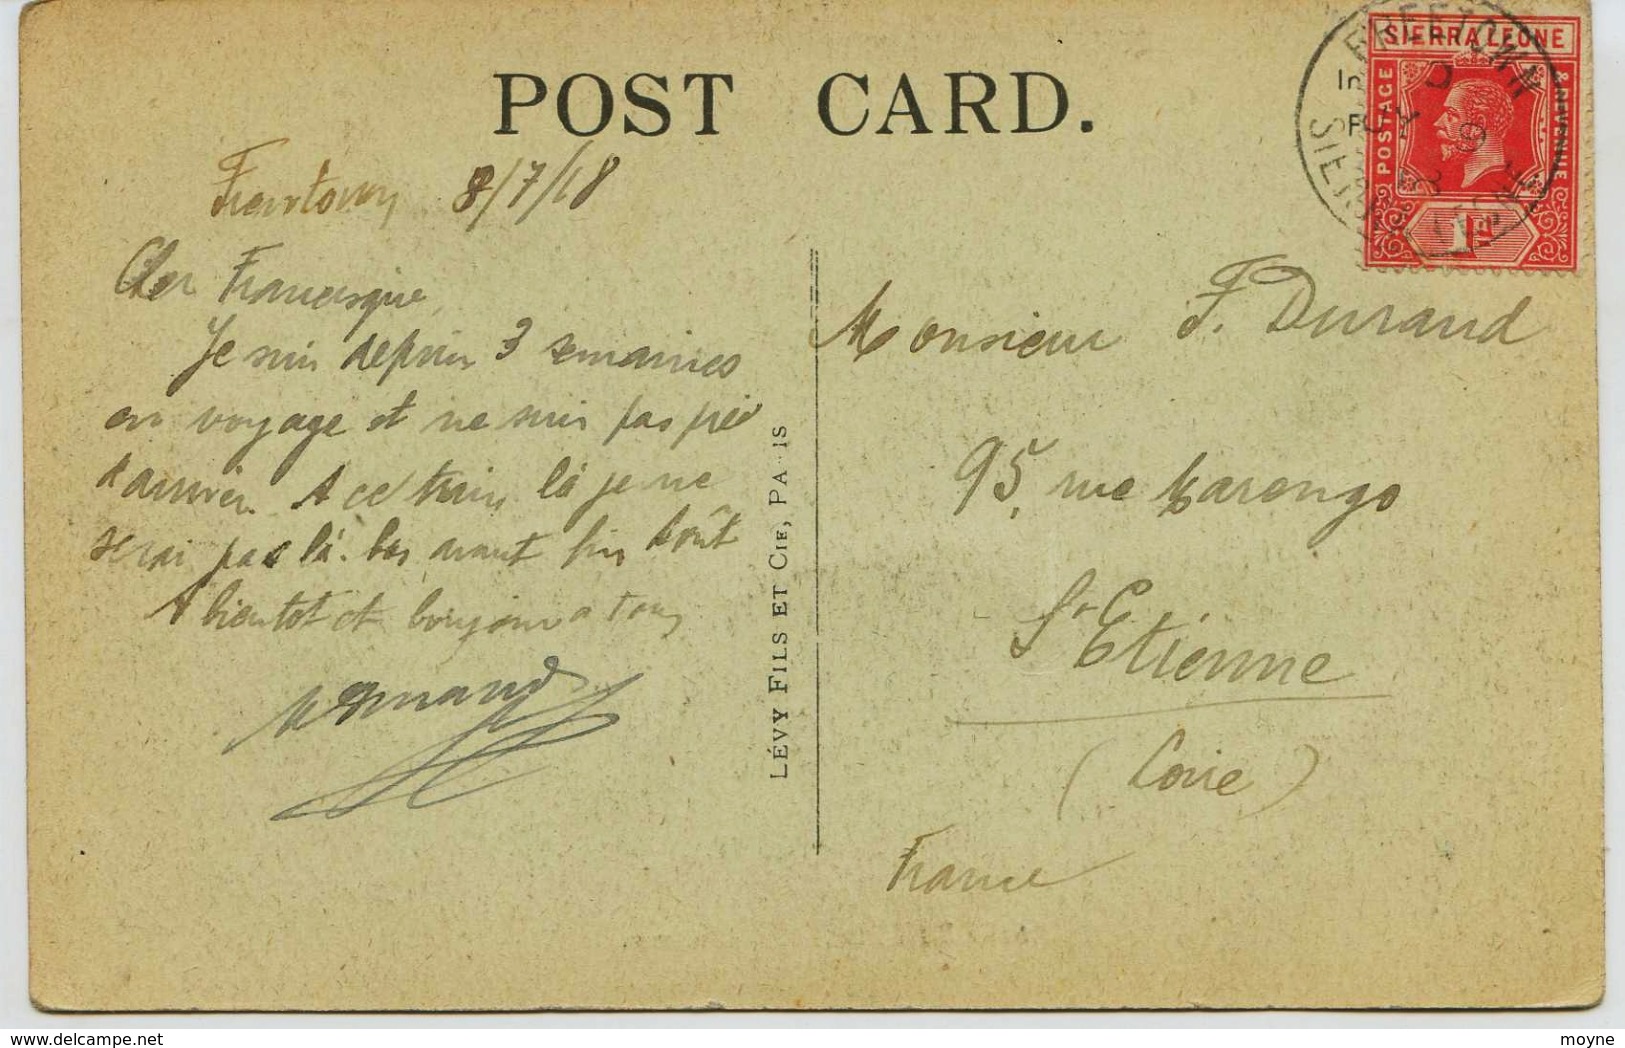 POST CARD.
Freetown 8/7/18
Cher Francisque
Je suis depuis 3 semaines
en voyage et ne suis pas près
d'arriver. A ce train là je ne
serai pas là-bas avant fin Août
A bientot et bonjour a tous
LÉVY FILS ET CIE, PA IS
SIERRA LEONE
POSTAGE
& REVENUE
1D
FREETOWN
SIERRA LEONE
Monsieur F. Durand
95, rue Marengo
St Etienne
(Loire)
France
moyne